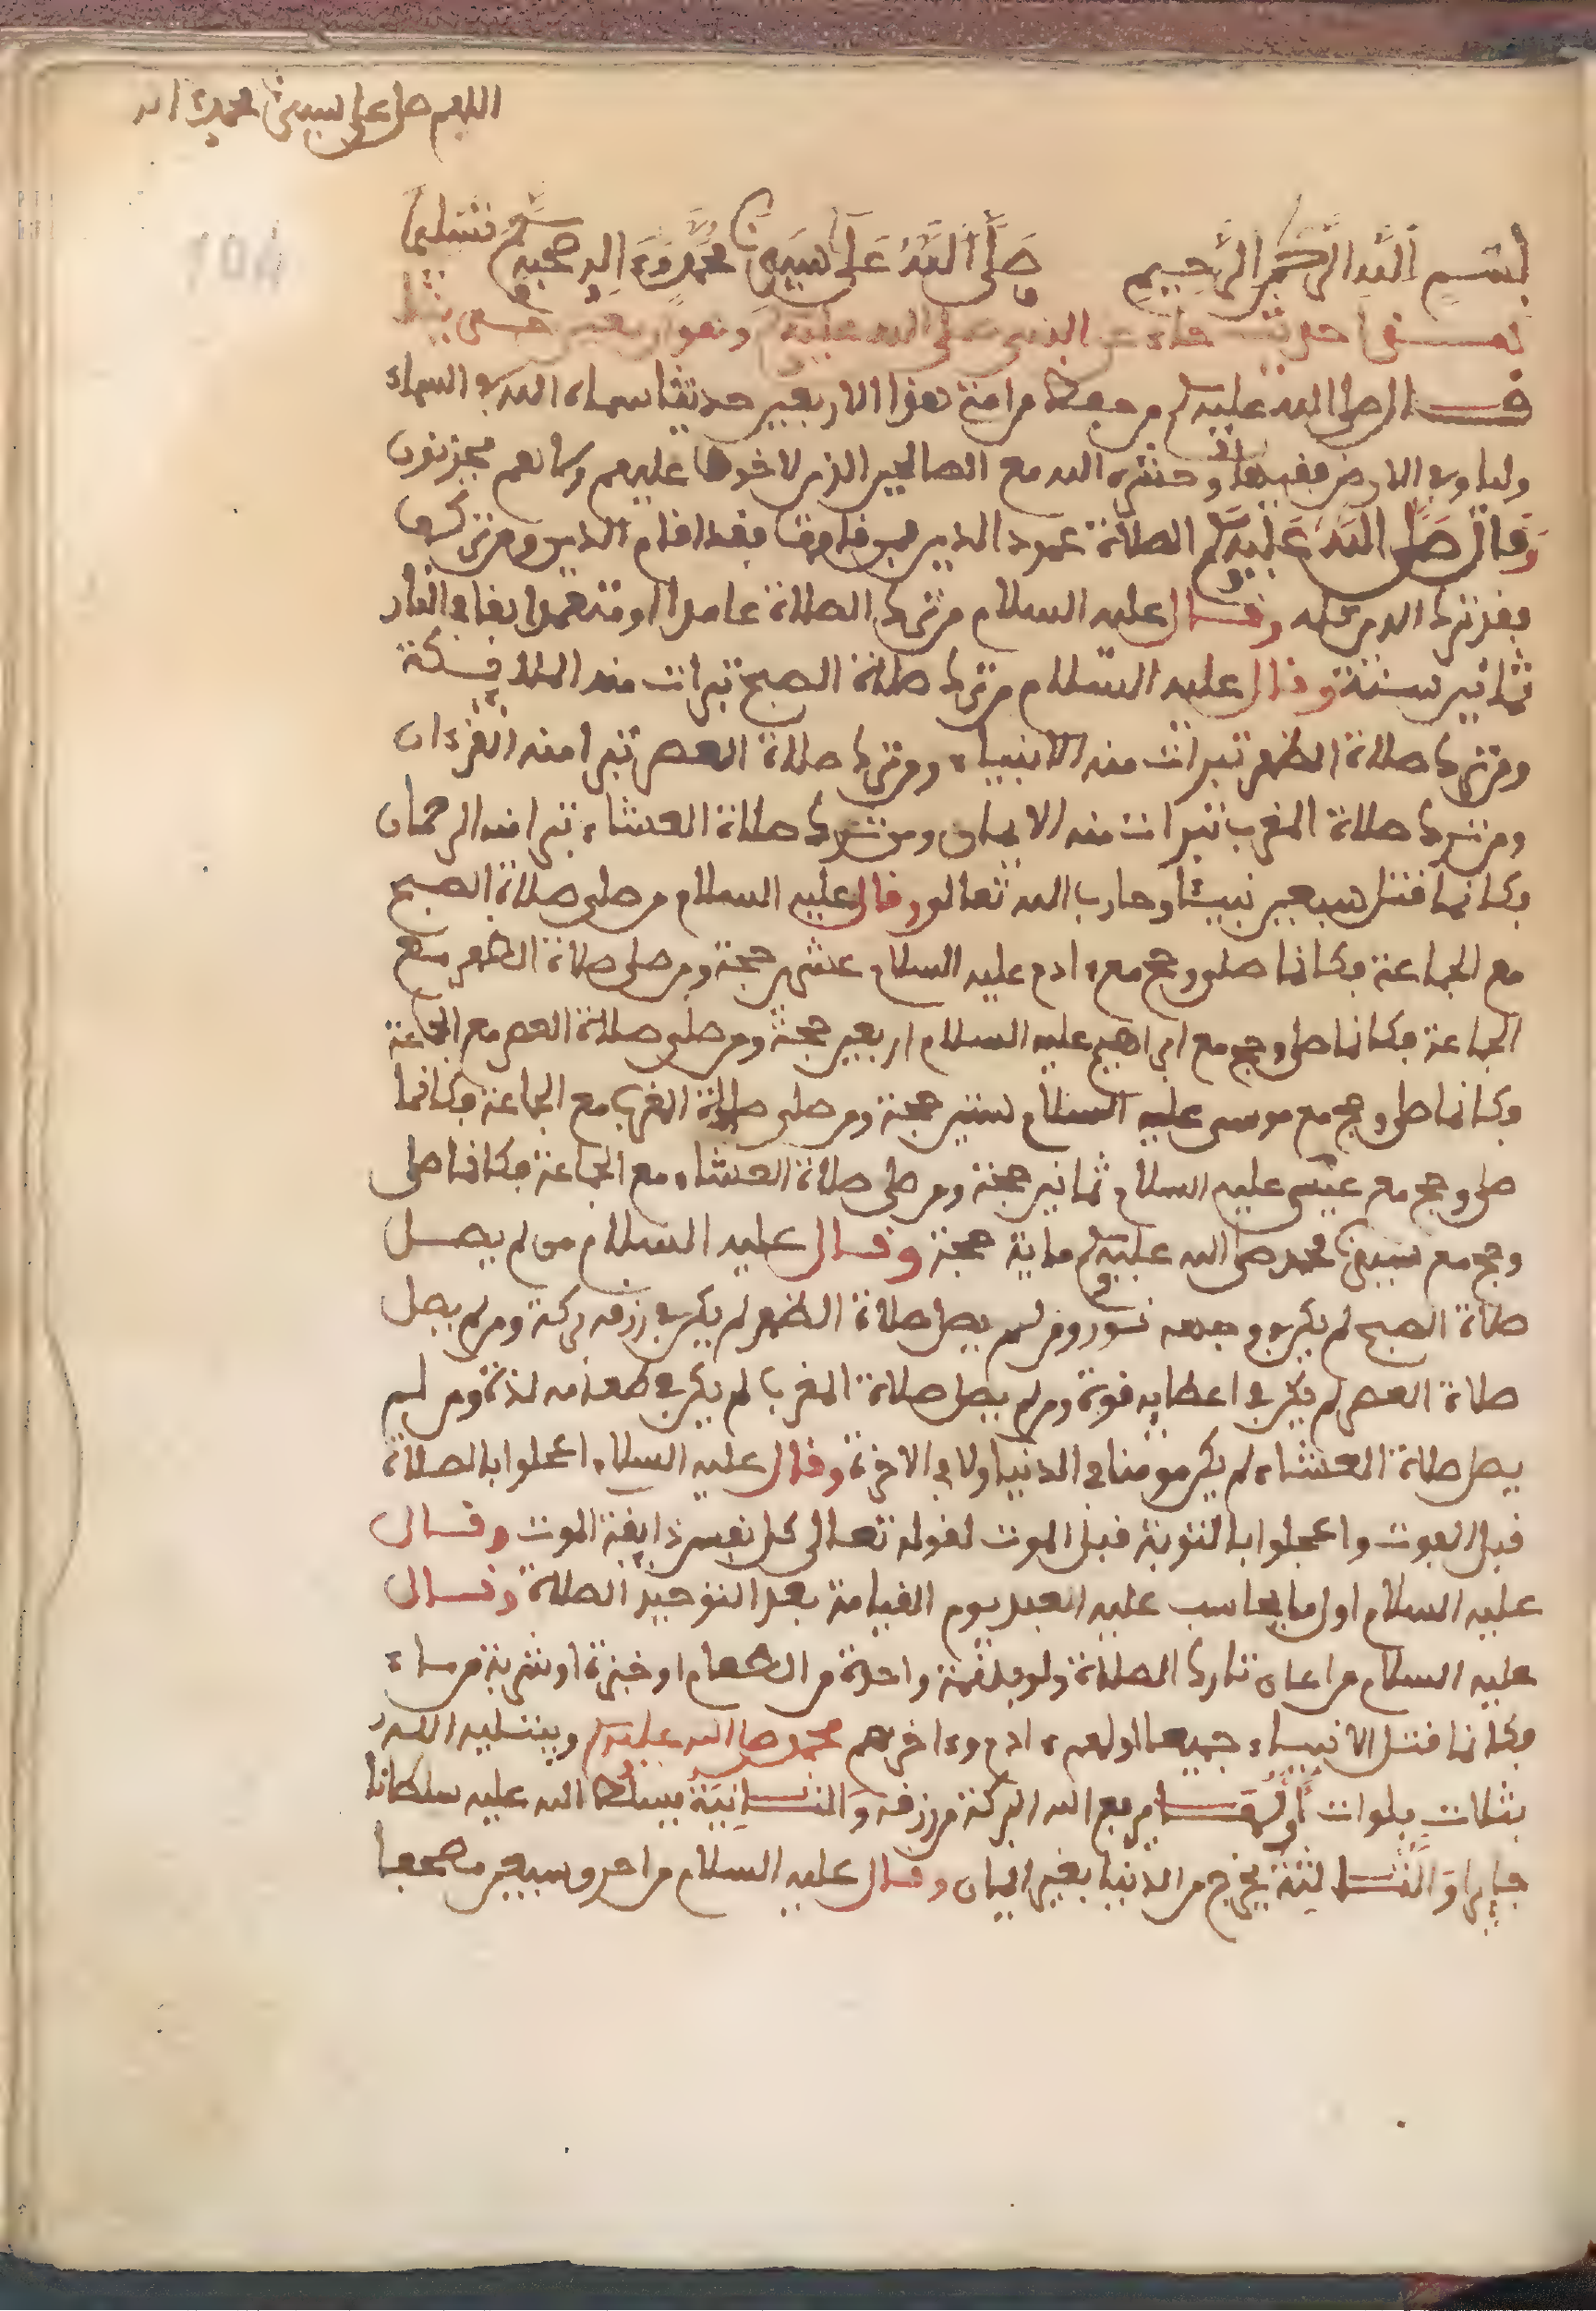 اللهم صل على سيدنا محمد وءاله
بسم الله الرحمن الرحيم صلى الله على سيدنا محمد وءاله وصحبه وسلم تسليما
حديث جاء عن النبي صلى الله عليه وسلم وهو اربعين
قال صلى الله عليه وسلم من حفظ من امتي هذا الاربعين حديثا سماه الله في السماء
وليا وفي الارض فقيها وحشره الله مع الصالحين الذين لا خوف عليهم ولا هم يحزنون
وقال صلى الله عليه وسلم الصلاة عمود الدين فمن قامها فقد اقام الدين ومن تركها
فقد ترك الدين كله وقال عليه السلام من ترك الصلاة عامدا او متعمدا بقا في النار
ثمانين سنة وقال عليه السلام من ترك صلاة الصبح تبرات منه الملايكة
ومن ترك صلاة الظهر تبرات منه الانبياء ومن ترك صلاة العصر تبرا منه القرءان
ومن ترك صلاة المغرب تبرات منه الايمان ومن ترك صلاة العشاء تبرا منه الرحمان
فكانما قتل سبعين نبيئا وحارب الله تعالى وقال عليه السلام من صلى صلاة الصبح
مع الجماعة فكانما صلى وحج مع ءادم عليه السلام عشر حجة ومن صلى صلاة الظهر مع
الجماعة فكانما صلى وحج مع ابراهيم عليه السلام اربعين حجة ومن صلى صلاة العصر مع الجماعة
فكانما صلى وحج مع موسى عليه السلام ستين حجة ومن صلى صلاة المغرب مع الجماعة فكانما
صلى وحج مع عيسى عليه السلام ثمانين حجة ومن صلى صلاة العشاء مع الجماعة فكانما صلى
وحج مع سيدنا محمد صلى الله عليه وسلم ماية حجة وقال عليه السلام من لم يصل
صلاة الصبح لم يكن في وجهه نور ومن لم يصل صلاة الظهر لم يكن في رزقه بركة ومن لم يصل
صلاة العصر لم يكن في اعطايه قوة ومن لم يصل صلاة المغرب لم يكن في طعامه لذة ومن لم
يصل صلاة العشاء لم يكن مومنا في الدنيا ولا في الاخرة وقال عليه السلام اعجلوا بالصلاة
قبل الفوت واعجلوا بالتوبة قبل الموت لقوله تعالى كل نفس ذايقة الموت وقال
عليه السلام اول ما يحاسب عليه العبد يوم القيامة بعد التوحيد الصلاة وقال
عليه السلام من اعان تارك الصلاة ولو بلقمة واحدة من الطعام او خبزة او شربة من ماء
فكانما قتل الانبياء جميعا اولهم ءادم وءاخرهم محمد صلى الله عليه وسلم ويبتليه الله
بثلاث بلوات اولها يرفع الله البركة من رزقه والثانية يسلط الله عليه سلطانا
جايرا والثالثة يخرج من الدنيا بغير ايمان وقال عليه السلام من احرق سبعين مصحفا